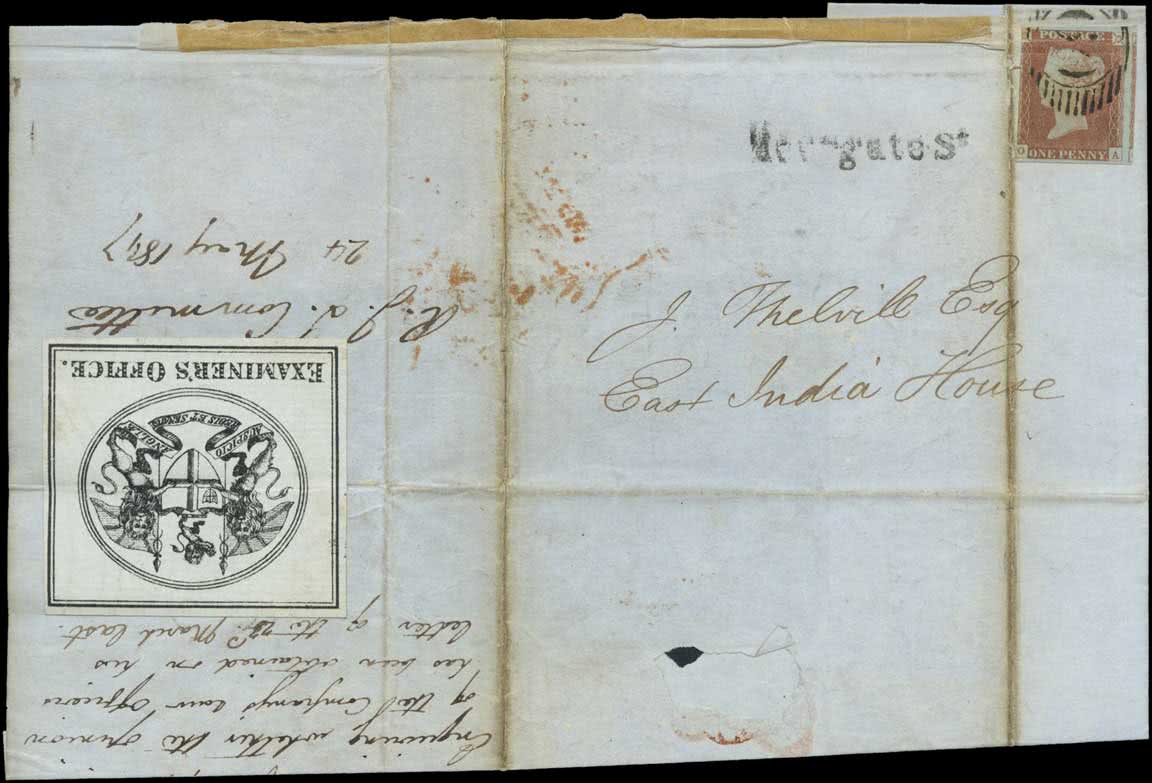 POSTAGE
O A
ONE PENNY
gate St
J. Thelvill Esq
East India House
Enquiring whether the opinion
of the Company's Law Officers
has been obtained on his
letter of the March last.
EXAMINER'S OFFICE.
AUSPICIO REGIS ET SENATUS ANGLIÆ
Committee
24 May 1847